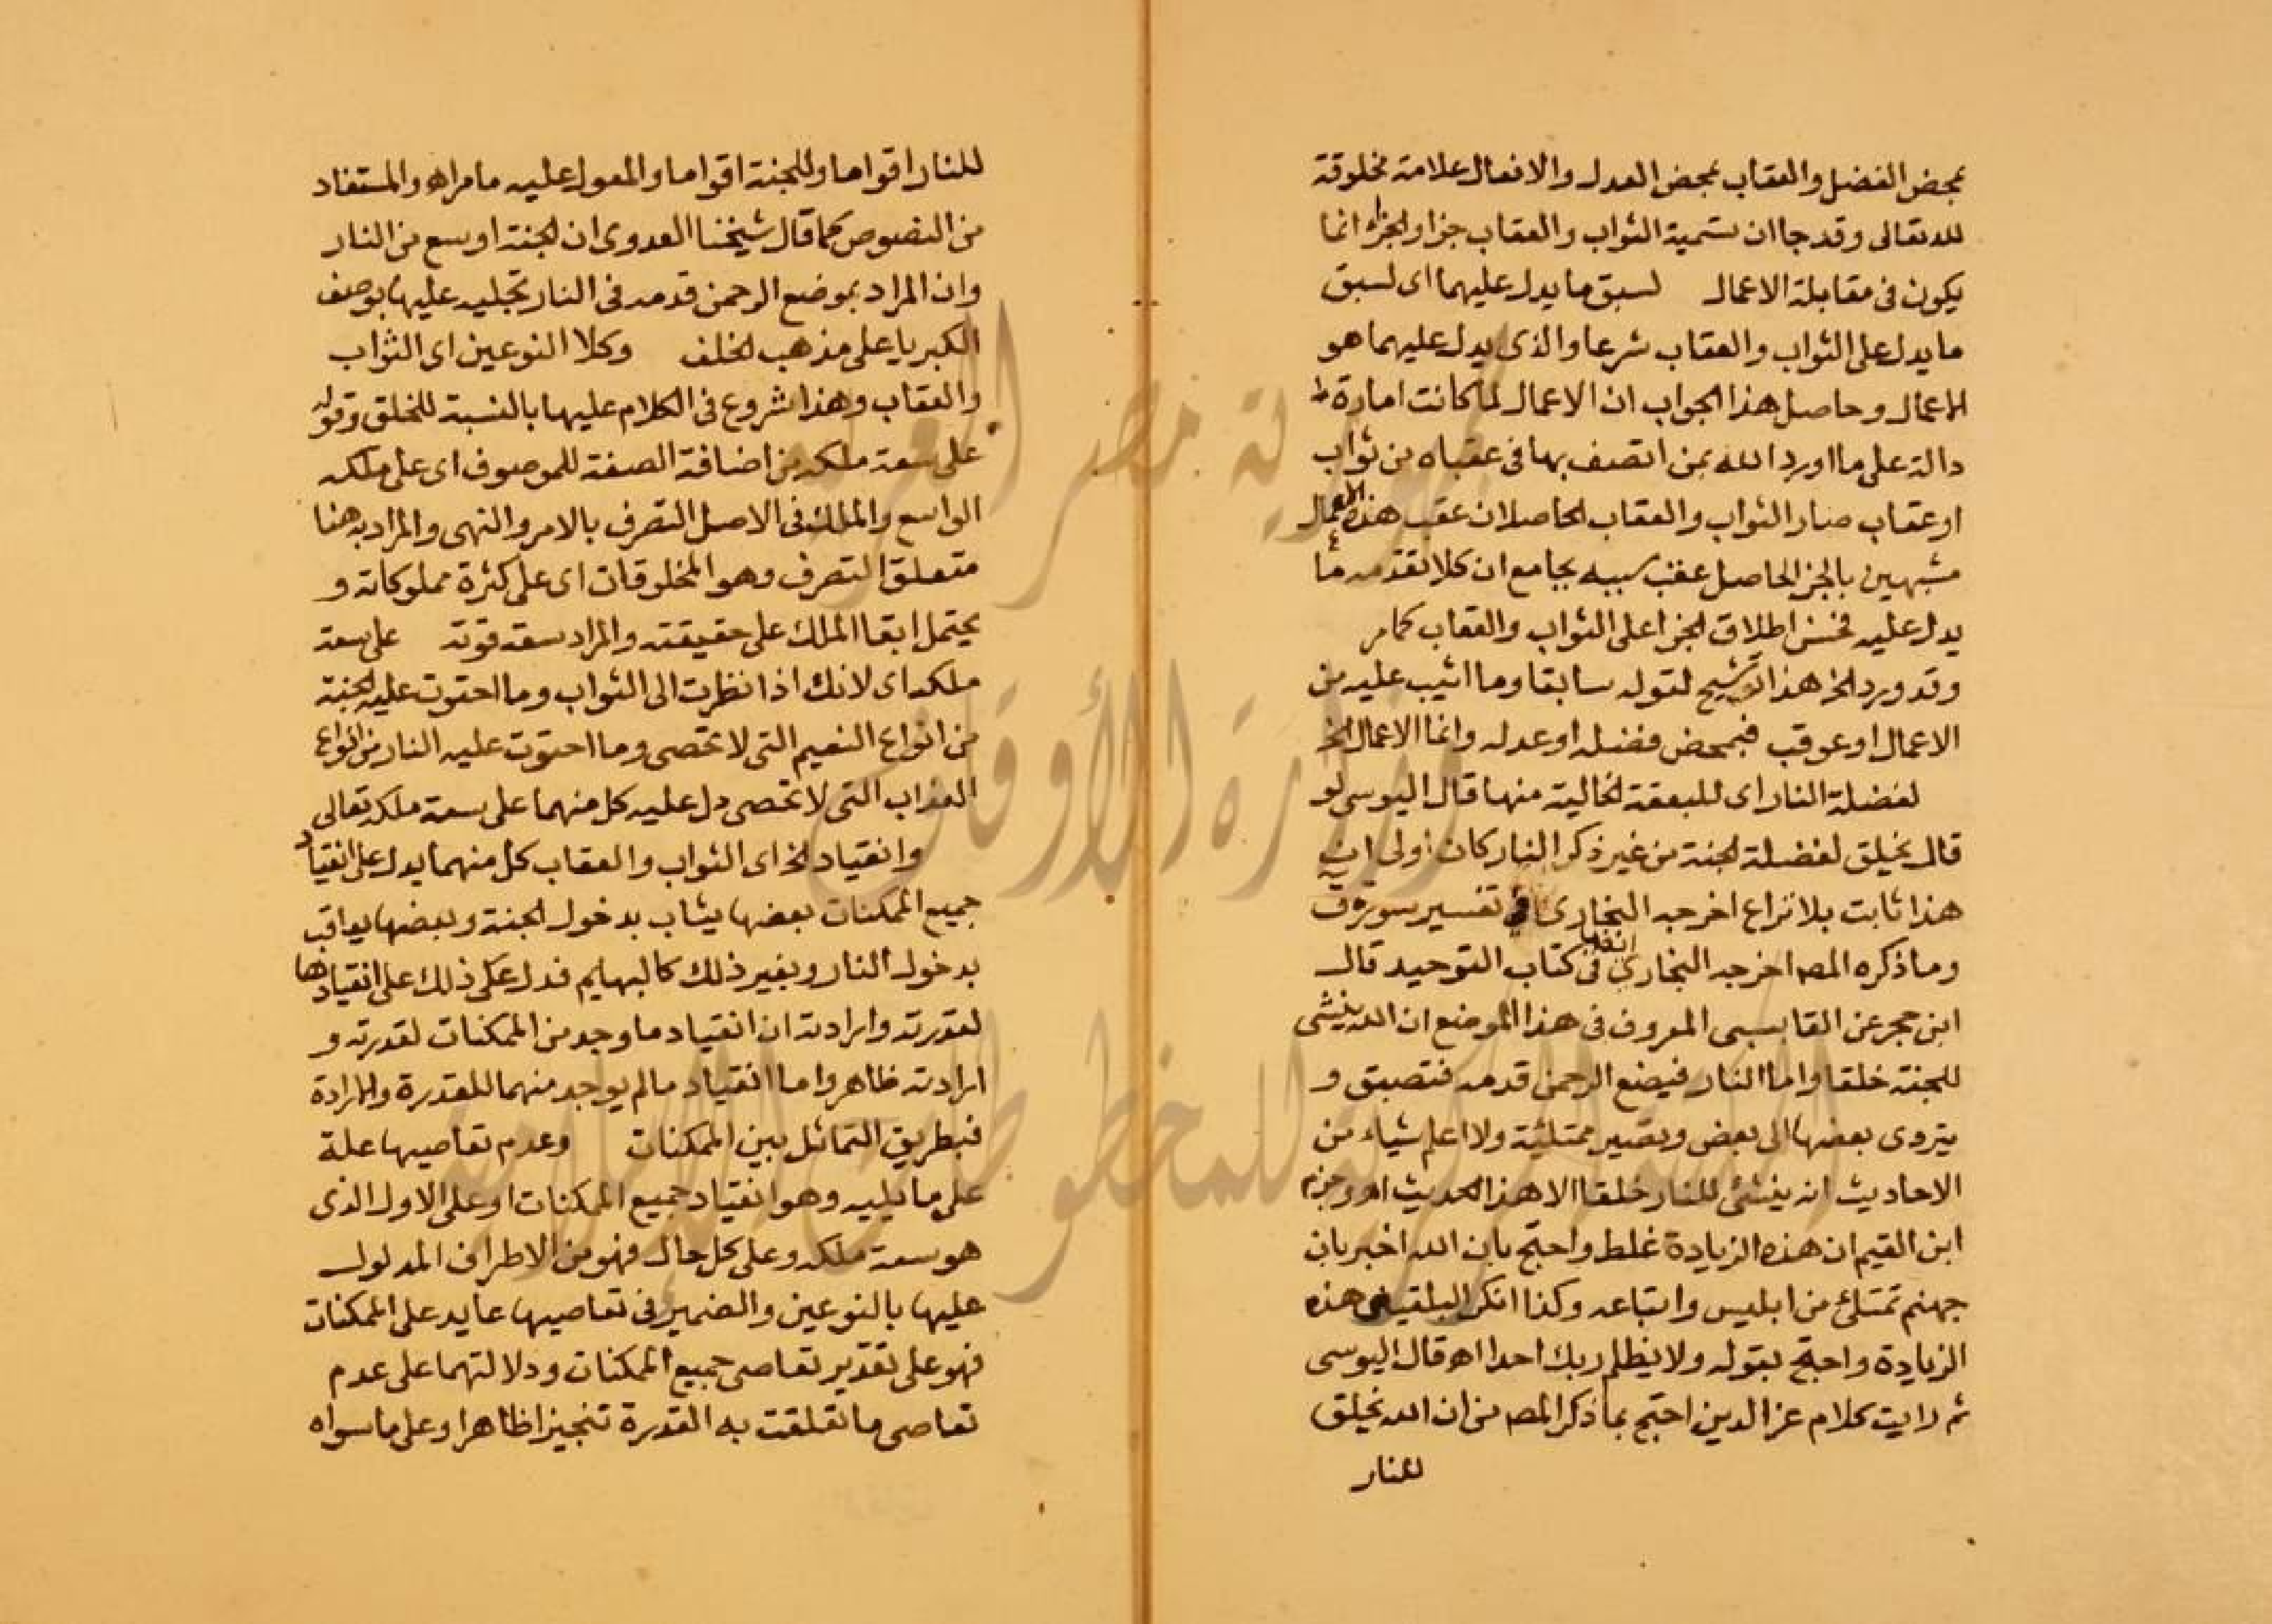 بمحض الفضل والعقاب بمحض العدل والافعال علامة مخلوقة
لله تعالى وقد جا ان تسمية الثواب والعقاب جزا والجزا انما
يكون فى مقابلة الاعمال لسبق ما يدل عليهما اى لسبق
ما يدل على الثواب والعقاب شرعا والذى يدل عليهما هو
الاعمال وحاصل هذا الجواب ان الاعمال لما كانت امارة
دالة على ما اورد الله بمن اتصف بها فى عقباه من ثواب
او عقاب صار الثواب والعقاب الحاصلان عقب هذه الاعمال
مشبهين بالجزا الحاصل عقب سببه بجامع ان كلا تقدمه ما
يدل عليه فحسن اطلاق الجزا على الثواب والعقاب كما مر
وقد ورد الخ هذا توشيح لقوله سابقا وما اثيب عليه من
الاعمال او عوقب فبمحض فضله او عدله وانما الاعمال الخ
لفضلة النار اى للبقعة الخالية منها قال اليوسى لو
قال يخلق لفضلة الجنة من غير ذكر النار كان اولى اذ
هذا ثابت بلا نزاع اخرجه البخارى فى تفسير سورة ق
وما ذكره المص اخرجه البخارى ايضا فى كتاب التوحيد قال
ابن حجر عن القابسى المعروف فى هذا الموضع ان الله ينشى
للجنة خلقا واما النار فيضع الرحمن قدمه فتضيق و
ينزوى بعضها الى بعض وتصير ممتلئة ولا اعلم شياء من
الاحاديث انه ينشئ للنار خلقا الا هذا الحديث اهـ وجزم
ابن القيم ان هذه الزيادة غلط واحتج بان الله اخبر بان
جهنم تمتلئ من ابليس واتباعه وكذا انكر البلقينى هذه
الزيادة واحتج بقوله ولا يظلم ربك احدا اهـ قال اليوسى
ثم رايت كلام عز الدين احتج بما ذكر المص من ان الله يخلق
للنار
للنار اقواما وللجنة اقواما والمعول عليه ما مر اهـ والمستفاد
من النصوص كما قال شيخنا العدوى ان الجنة اوسع من النار
وان المراد بموضع الرحمن قدمه فى النار تجليه عليها بوصف
الكبريا على مذهب الخلف وكلا النوعين اى الثواب
والعقاب وهذا شروع فى الكلام عليها بالنسبة للخلق وقوله
على سعة ملكه من اضافة الصفة للموصوف اى على ملكه
الواسع والملك فى الاصل التصرف بالامر والنهى والمراد به هنا
متعلق التصرف وهو المخلوقات اى على كثرة مملوكاته و
يحتمل ابقا الملك على حقيقته والمراد سعة قوته على سعة
ملكه اى لانك اذا نظرت الى الثواب وما احتوت عليه الجنة
من انواع النعيم التى لا تحصى وما احتوت عليه النار من انواع
العذاب التى لا تحصى دل عليه كل منهما على سعة ملكه تعالى
وانقياد الخ اى الثواب والعقاب كل منهما يدل على انقياد
جميع الممكنات بعضها يثاب بدخول الجنة وبعضها يعاقب
بدخول النار وبغير ذلك كالبهايم فدل على ذلك على انقيادها
لقدرته وارادته ان انقياد ما وجد من الممكنات لقدرته و
ارادته ظاهر واما انقياد ما لم يوجد منهما للقدرة والارادة
فبطريق التماثل بين الممكنات وعدم تعاصيها علة
على ما يليه وهو انقياد جميع الممكنات او على الاول الذى
هو سعة ملكه وعلى كل حال فهو من الاطراف المدلول
عليها بالنوعين والضمير فى تعاصيها عايد على الممكنات
فهو على تقدير تعاصى جميع الممكنات ودلالتهما على عدم
تعاصى ما تعلقت به القدرة تنجيزا ظاهرا وعلى ما سواه